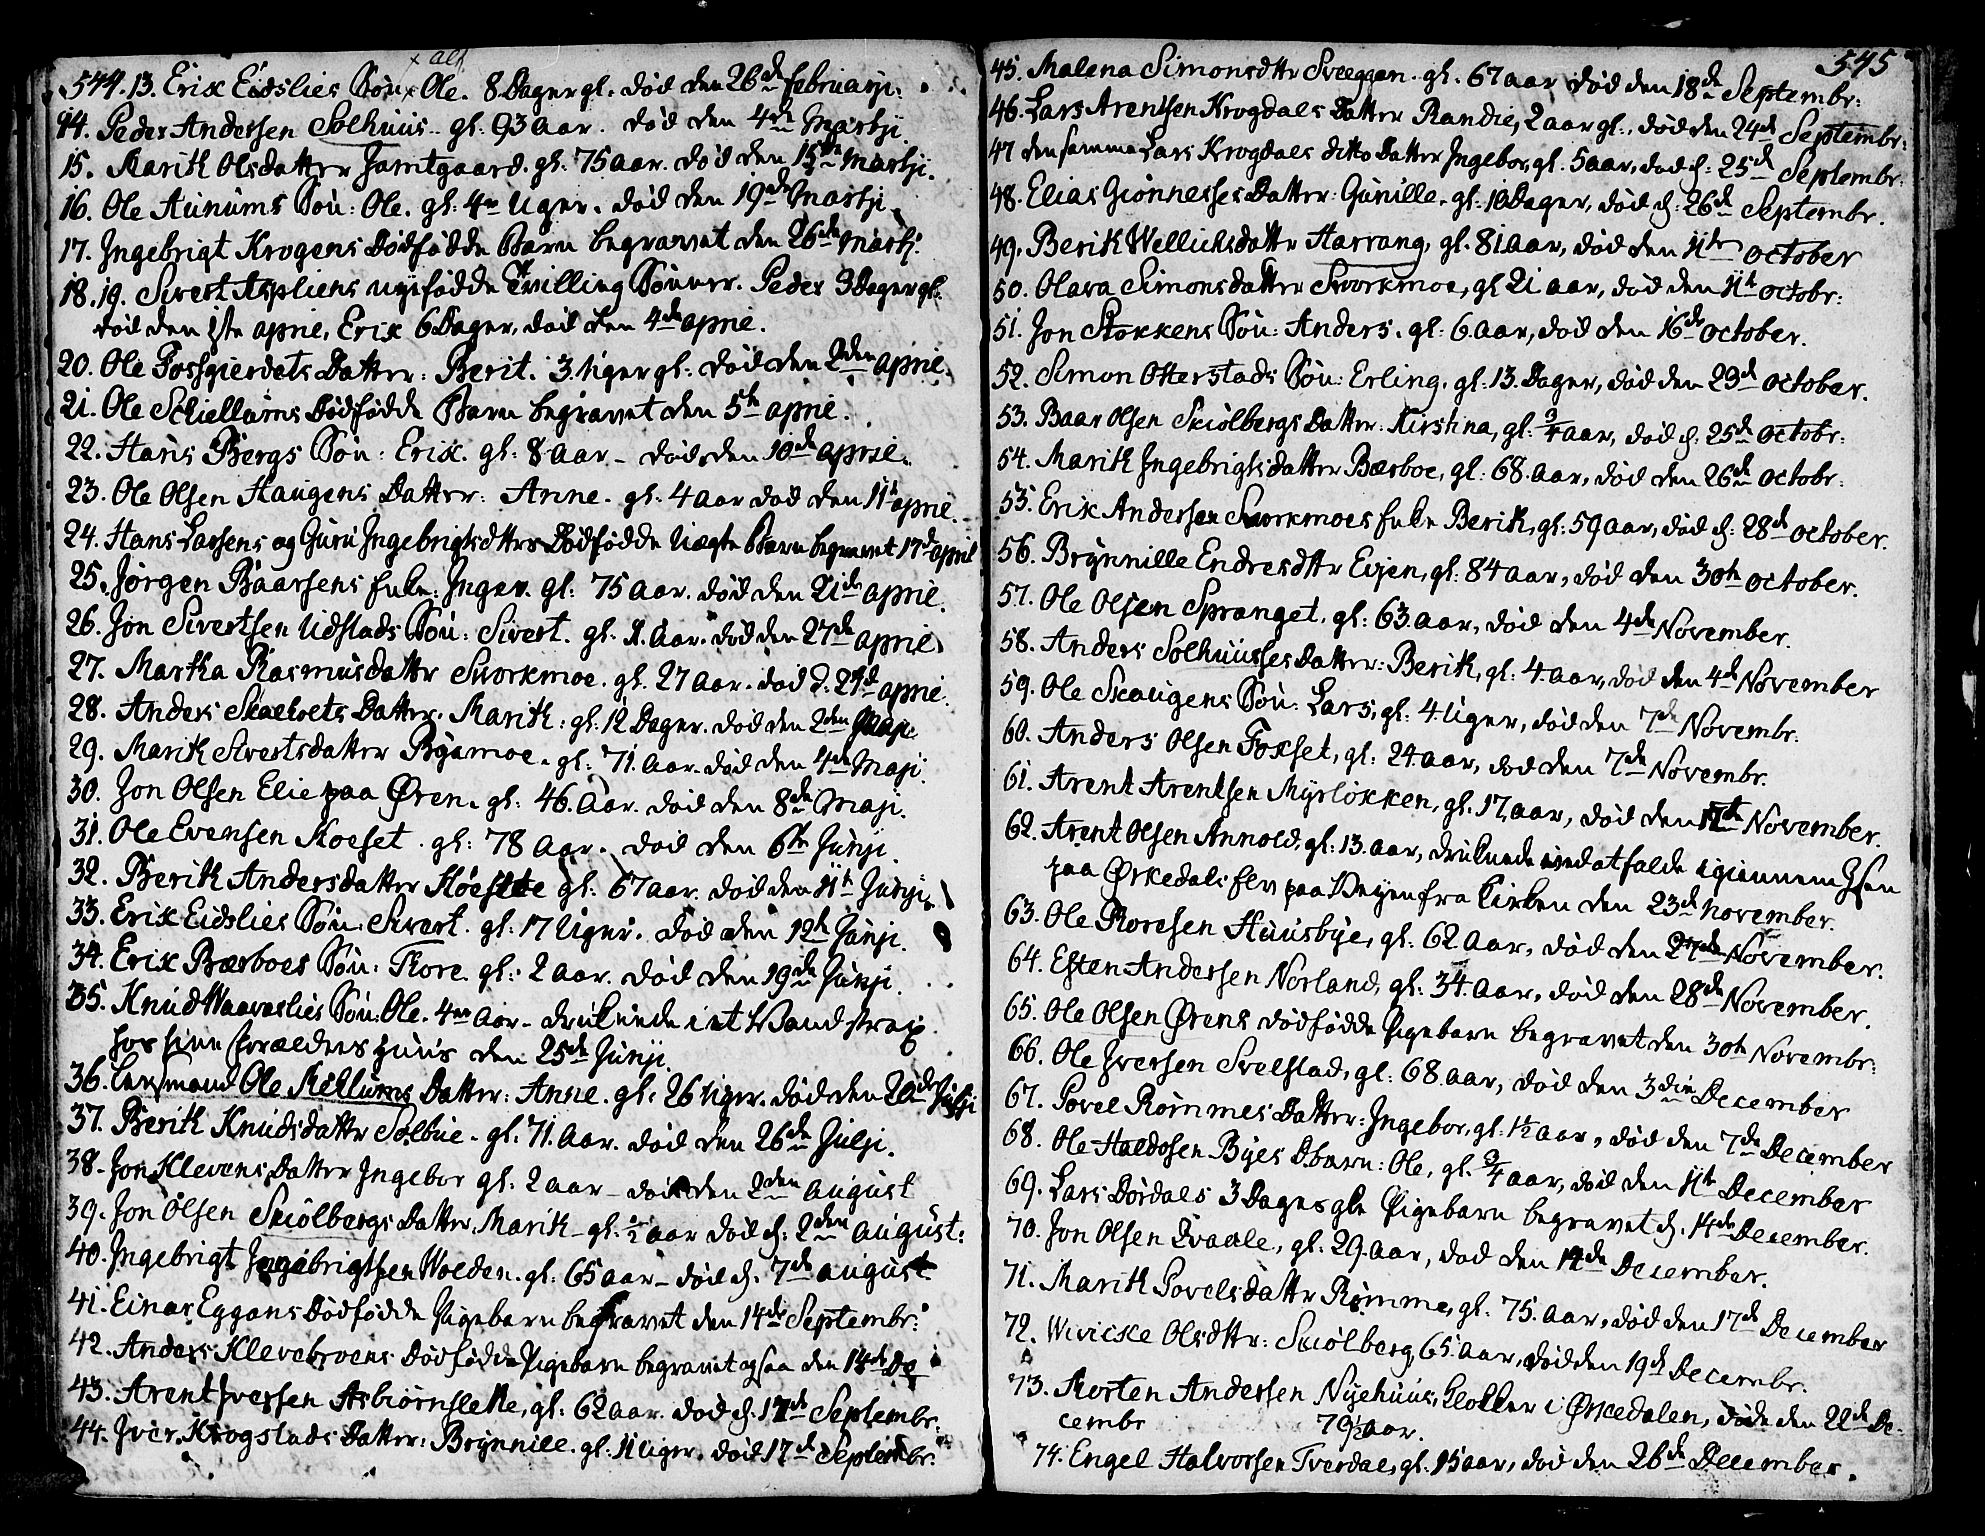 × alt
544. 13. Erix Eidslies Søn × Ole. 8 Dager gl. død den 26de februarji.
14. Peder Andersen Solhuus. gl: 93 aar. død den 4de Martji.
15. Marith Olsdatter Jamtgaard. gl: 75 aar. død den 15de Martji.
16. Ole Aunums Søn: Ole. gl: 4re Uger. død den 19de Martji.
17. Ingebrigt Krogens dødfødde Barn begravet den 26de Martj:
18. 19. Sivert Aspliens nyefødde Tvilling Sønner. Peder 3 Dager gl:
død den 1ste april, Erix 6 Dager, død den 4de april.
20. Ole Fossgierdets Datter: Berit. 3. Uger gl: død den 2den april.
21. Ole Schiellums dødfødde Barn begravet den 5te april.
22. Hans Bergs Søn: Erix. gl: 8 aar - død den 10de april.
23. Ole Olsen Haugens Datter: Anne. gl: 4 aar død den 11te april.
24. Hans Larsens og Guru Ingebrigtsdtters dødfødde Uægte Barn begravet 17de april
25. Jørgen Baarsens Enke: Inger. gl: 75 aar. død den 21de april.
26. Jon Sivertsen Udstads Søn: Sivert. gl. 11. Aar. død den 27de april
27. Martha Rasmusdattr Sworkmoe. gl. 27 aar. død d. 29de april.
28. Anders Skaelvets Datter. Marith: gl: 12 Dager. død den 2den Maji
29. Marith Sivertsdatter Byamoe. gl: 71. Aar. død den 4de Maji.
30. Jon Olsen Elie paa Øren. gl: 46. Aar. død den 8de Maji.
31. Ole Evensen Koeset. gl: 78 aar. død den 6te Junji.
32. Berith Andersdatter Høestte gl: 67 aar. død den 11te Junji.
33. Erix Eidslies Søn: Sivert. gl: 17 Uger. død den 12te Junji.
34. Erix Bærboes Søn: Tore. gl: 2 aar. død den 19de Junji.
35. Knud Waavaslies Søn: Ole. 4re Aar - druknede i et Vand strax
hos sine forælders Huus den 25de Junji.
36. Lensmand Ole Kiellums Datter: Anne. gl: 26 Uger. død den 20de Julji
37. Berith Knudsdattr Solbue. gl: 71. Aar. død den 26de Julji.
38. Jon Klevens Datter Ingebor gl: 2 aar - død den 2den August
39. Jon Olsen Skiølbergs Datter. Marith - gl: ½ aar død d: 2den August:
40. Ingebrigt Ingebrigtsen Wolden. gl: 65 aar - død d. 7de August
41. Einar Eggans dødfødde Pigebarn begravet den 14de Septembr:
42. Anders Klevebroens dødfødde Pigebarn begravet ogsaa den 14de Do
43. Arent Iversen Asbiørnslette, gl: 62 aar. død d. 17de Septembr.
44. Iver Krogstads Datter: Brynnill. gl: 11 Uger. død 17de Septembr.
545
45. Malena Simonsdttr Sveeggen. gl: 67 aar død den 18de Septembr:
46. Lars Arentsen Krogdals Datter Randie, 2 aar gl:, død den 24de Septembr:
47 den samme Lars Krogdals ditto Datter Ingebor, gl: 5 aar, død d: 25de Septembr:
48. Elias Giønnesses Datter: Gunille. gl: 10 Dager, død d: 26de Septembr.
49. Berith Wellichsdattr Harrang, gl. 81 aar, død den 11te October
50. Olava Simonsdatter Sworkmoe, gl 21 aar, død den 11te octobr:
51. Jon Stokkens Søn: Anders. gl: 6 aar, død den 16de October.
52. Simon Otterstads Søn: Erling. gl: 13. Dager, død den 23de October.
53. Baar Olsen Skiølbergs Datter: Kirstina, gl: ¾ aar, død d. 25de Octobr:
54. Marith Ingebrigtsdatter Bærboe, gl: 68. aar, død den 26de octobr:
55. Erix Andersen Sworkmoes Enke Berith, gl: 59 aar, død d: 28de October.
56. Brynnille Endresdttr Evjen, gl: 84 aar, død den 30te October.
57. Ole Olsen Spranget. gl: 63. aar, død den 4de November.
58. Anders Solhuusses Datter: Berith, gl: 4. aar, død den 4de November
59. Ole Skaugens Søn: Lars, gl: 4. Uger, død den 7de Novembr:
60. Anders Olsen Foxset, gl: 24 aar, død den 7de Novembr.
61. Arent Arentsen Myrløkken, gl. 17, aar, død den 17de November.
62. Arent Olsen Annold, gl: 13. aar, druknede ved at falde igiennem Isen
paa Ørkedals Elv paa Veyen fra Kirken den 23de November.
63. Ole Roresen Huusbye, gl: 62 Aar, død den 27de November.
64. Esten Andersen Norland, gl: 34. aar, død den 28de November.
65. Ole Olsen Ørens dødfødde Pigebarn begravet den 30te Novembr:
66. Ole Iversen Svelstad, gl: 68. aar, død den 3die December
67. Povel Rømmes Datter: Ingebor, gl: 1½ aar, død den 7de December
68. Ole Haldosen Byes D.barn: Ole, gl. ¾ aar, død den 11te December
69. Lars Dørdals 3 Dages gle Pigebarn begravet d. 14de December.
70. Jon Olsen Qvaale, gl: 29. aar, død den 14de December.
71. Marith Povelsdattr Rømme, gl. 75. aar, død den 17de December
72. Wivicke Olsdttr: Skiølberg, 65. aar, død den 19de Decembr.
73. Morten Andersen Nyehuus, Klokker i Ørkedalen, døde den 22de De-
cembr 79½ aar.
74. Engel Halvorsen Tverdal, gl: 15 aar, død den 26de December.